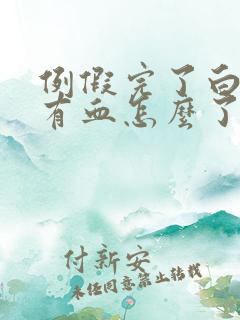 例假完了白
有血怎麼了
付新安
未经同意禁止转载